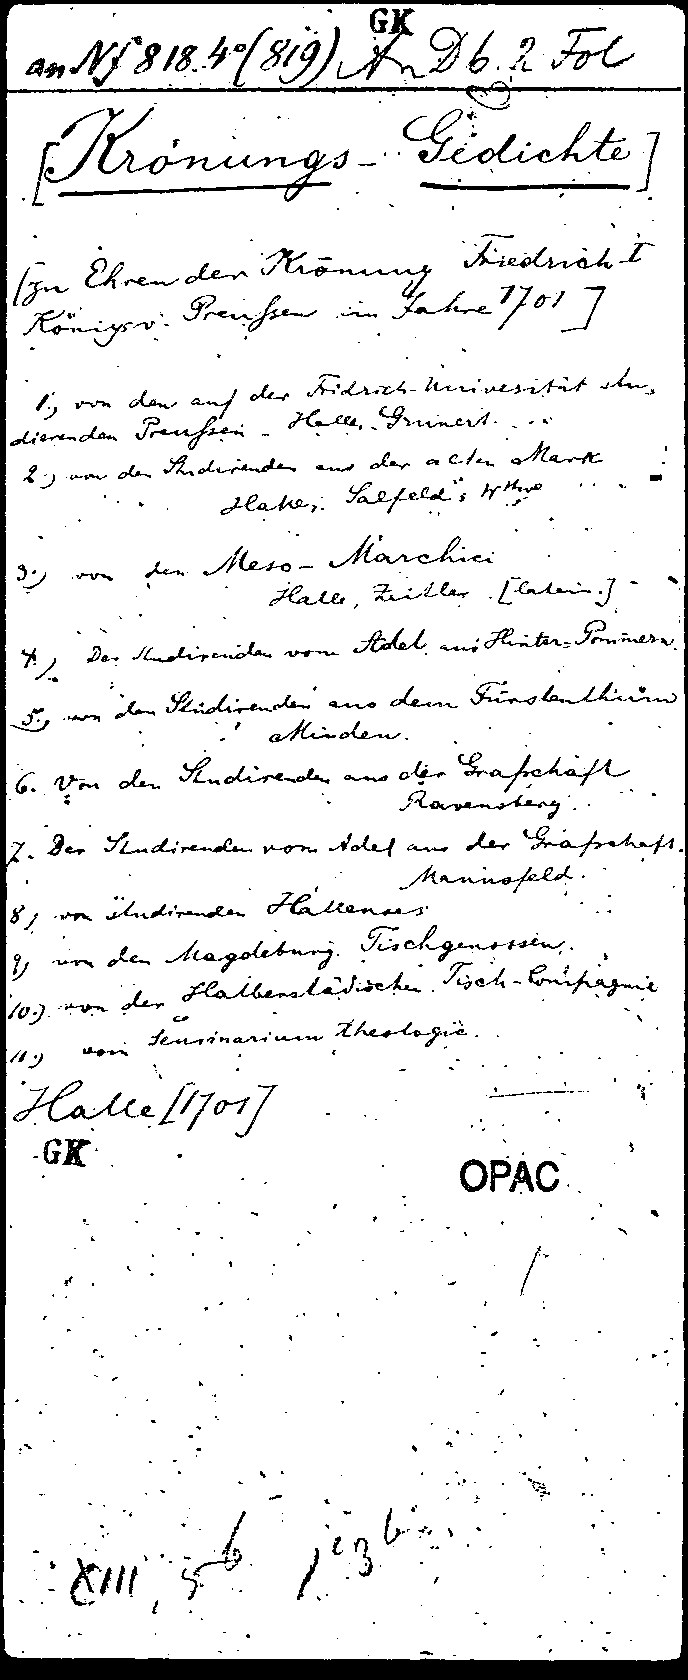 GK
an Nf 818. 4° (819) An Db. 2 Fol
[Krönungs-Gedichte]
[zu Ehren der Krönung Friedrich I
Königs v. Preussen im Jahre 1701]
1.) von den auf der Fridrich-Universität stu-
dierenden Preussen - Halle, Grunert.
2.) von den Studirenden aus der alten Mark
Halle, Salfeld's Wtwe
3.) von den Meso-Marchici
Halle, Zeitler [latein.]
4.) Der Studirenden vom Adel aus Hinter-Pommern
5.) von den Studirenden aus dem Fürstenthum
Minden.
6. Von den Studirenden aus der Grafschaft
Ravensberg.
7. Der Studirenden vom Adel aus der Grafschaft
Mannsfeld.
8) von studirenden Hallenses
9) von den Magdeburg. Tischgenossen.
10.) von der Halberstädischen Tisch-Compagnie
11.) vom Seminarium theologic.
Halle [1701]
GK
OPAC
XIII, 5